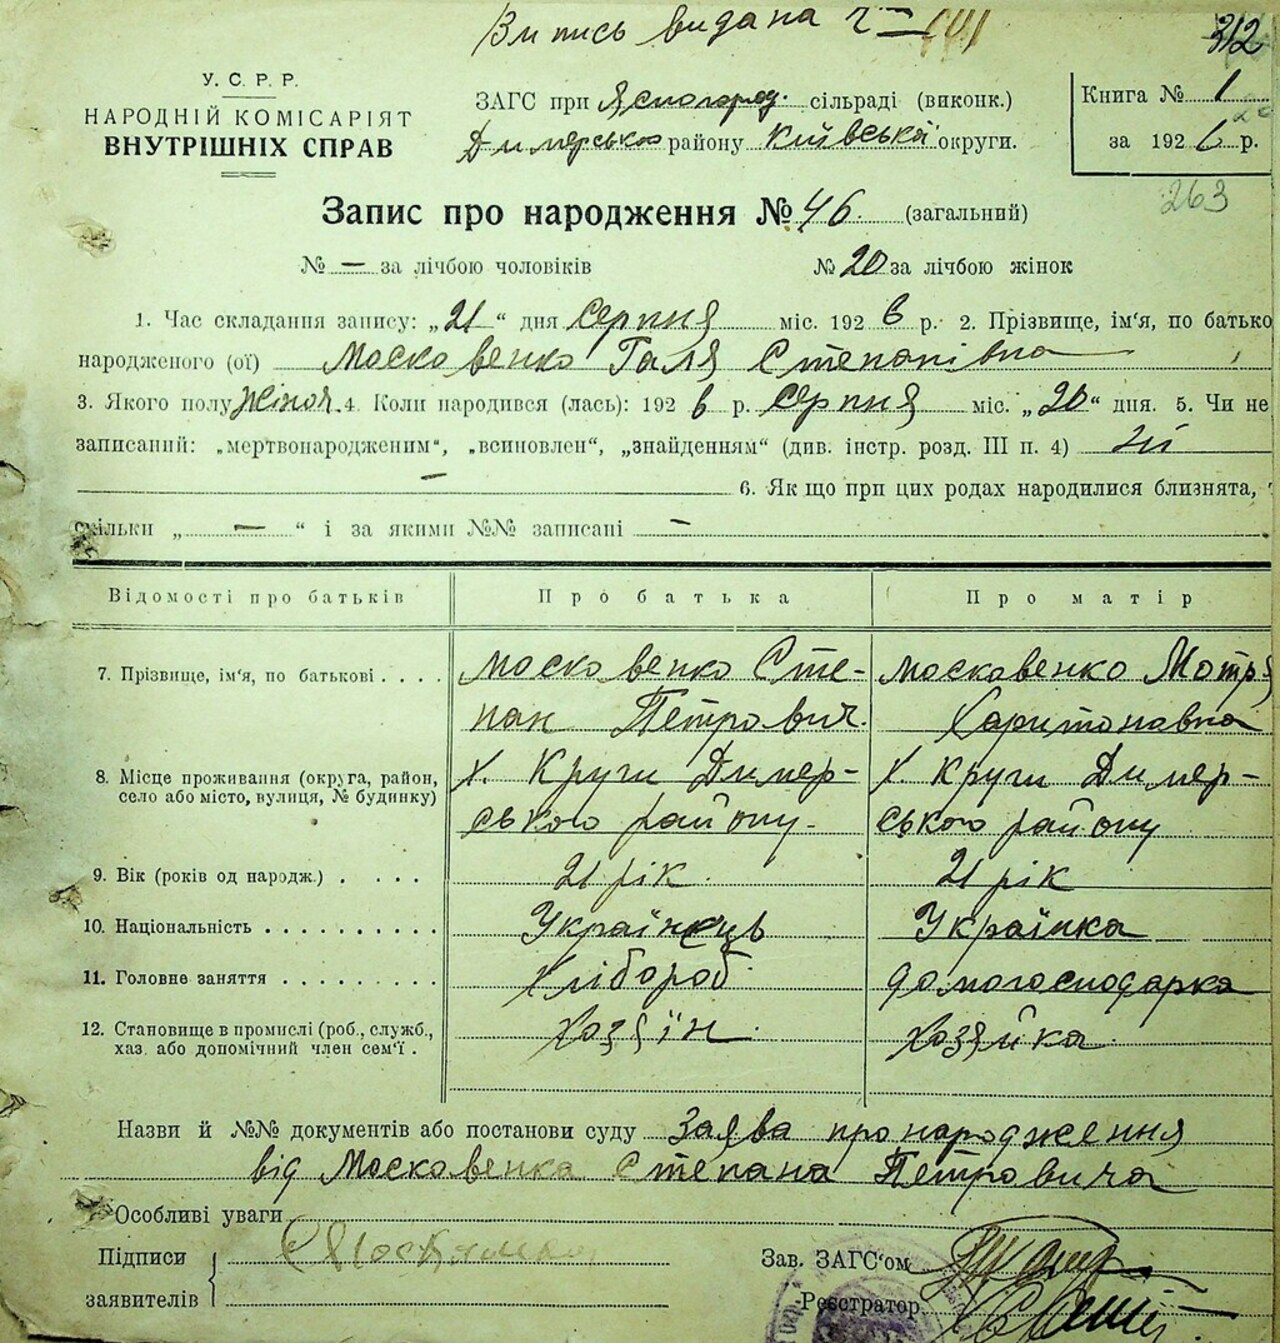 Випись видана
312
У. С. Р. Р.
НАРОДНІЙ КОМІСАРІЯТ
ВНУТРІШНІХ СПРАВ
ЗАГС при Ясногород. сільраді (виконк.)
Димерського району Київської округи.
Книга № 1
за 1926 р.
263
Запис про народження № 46. (загальний)
№ — за лічбою чоловіків № 20 за лічбою жінок
1. Час складання запису: „21“ дня Серпня міс. 1926 р. 2. Прізвище, ім'я, по батько
народженого (ої) Московенко Галя Степанівна
3. Якого полу жіноч. 4. Коли народився (лась): 1926 р. Серпня міс. „20“ дня. 5. Чи не
записаний: „мертвонародженим“, „всиновлен“, „знайденням“ (див. інстр. розд. III п. 4) ні
— 6. Як що при цих родах народилися близнята,
скільки „ — “ і за якими №№ записані —
Відомості про батьків Про батька Про матір
7. Прізвище, ім'я, по батькові . . . . Московенко Сте- Московенко Мотря
пан Петрович. Харитоновна
8. Місце проживання (округа, район, х. Круги Димер- х. Круги Димер-
село або місто, вулиця, № будинку) ського району. ського району
9. Вік (років од народж.) . . . . 21 рік. 21 рік
10. Національність . . . . . . . . . . Українець Українка
11. Головне заняття . . . . . . . . . Хлібороб домогосподарка
12. Становище в промислі (роб., служб., Хозяїн. Хозяйка
хаз. або допомічний член сем'ї .
Назви й №№ документів або постанови суду Заява про народження
від Московенка Степана Петровича
Особливі уваги
Підписи
заявителів
Зав. ЗАГС'ом
Реєстратор